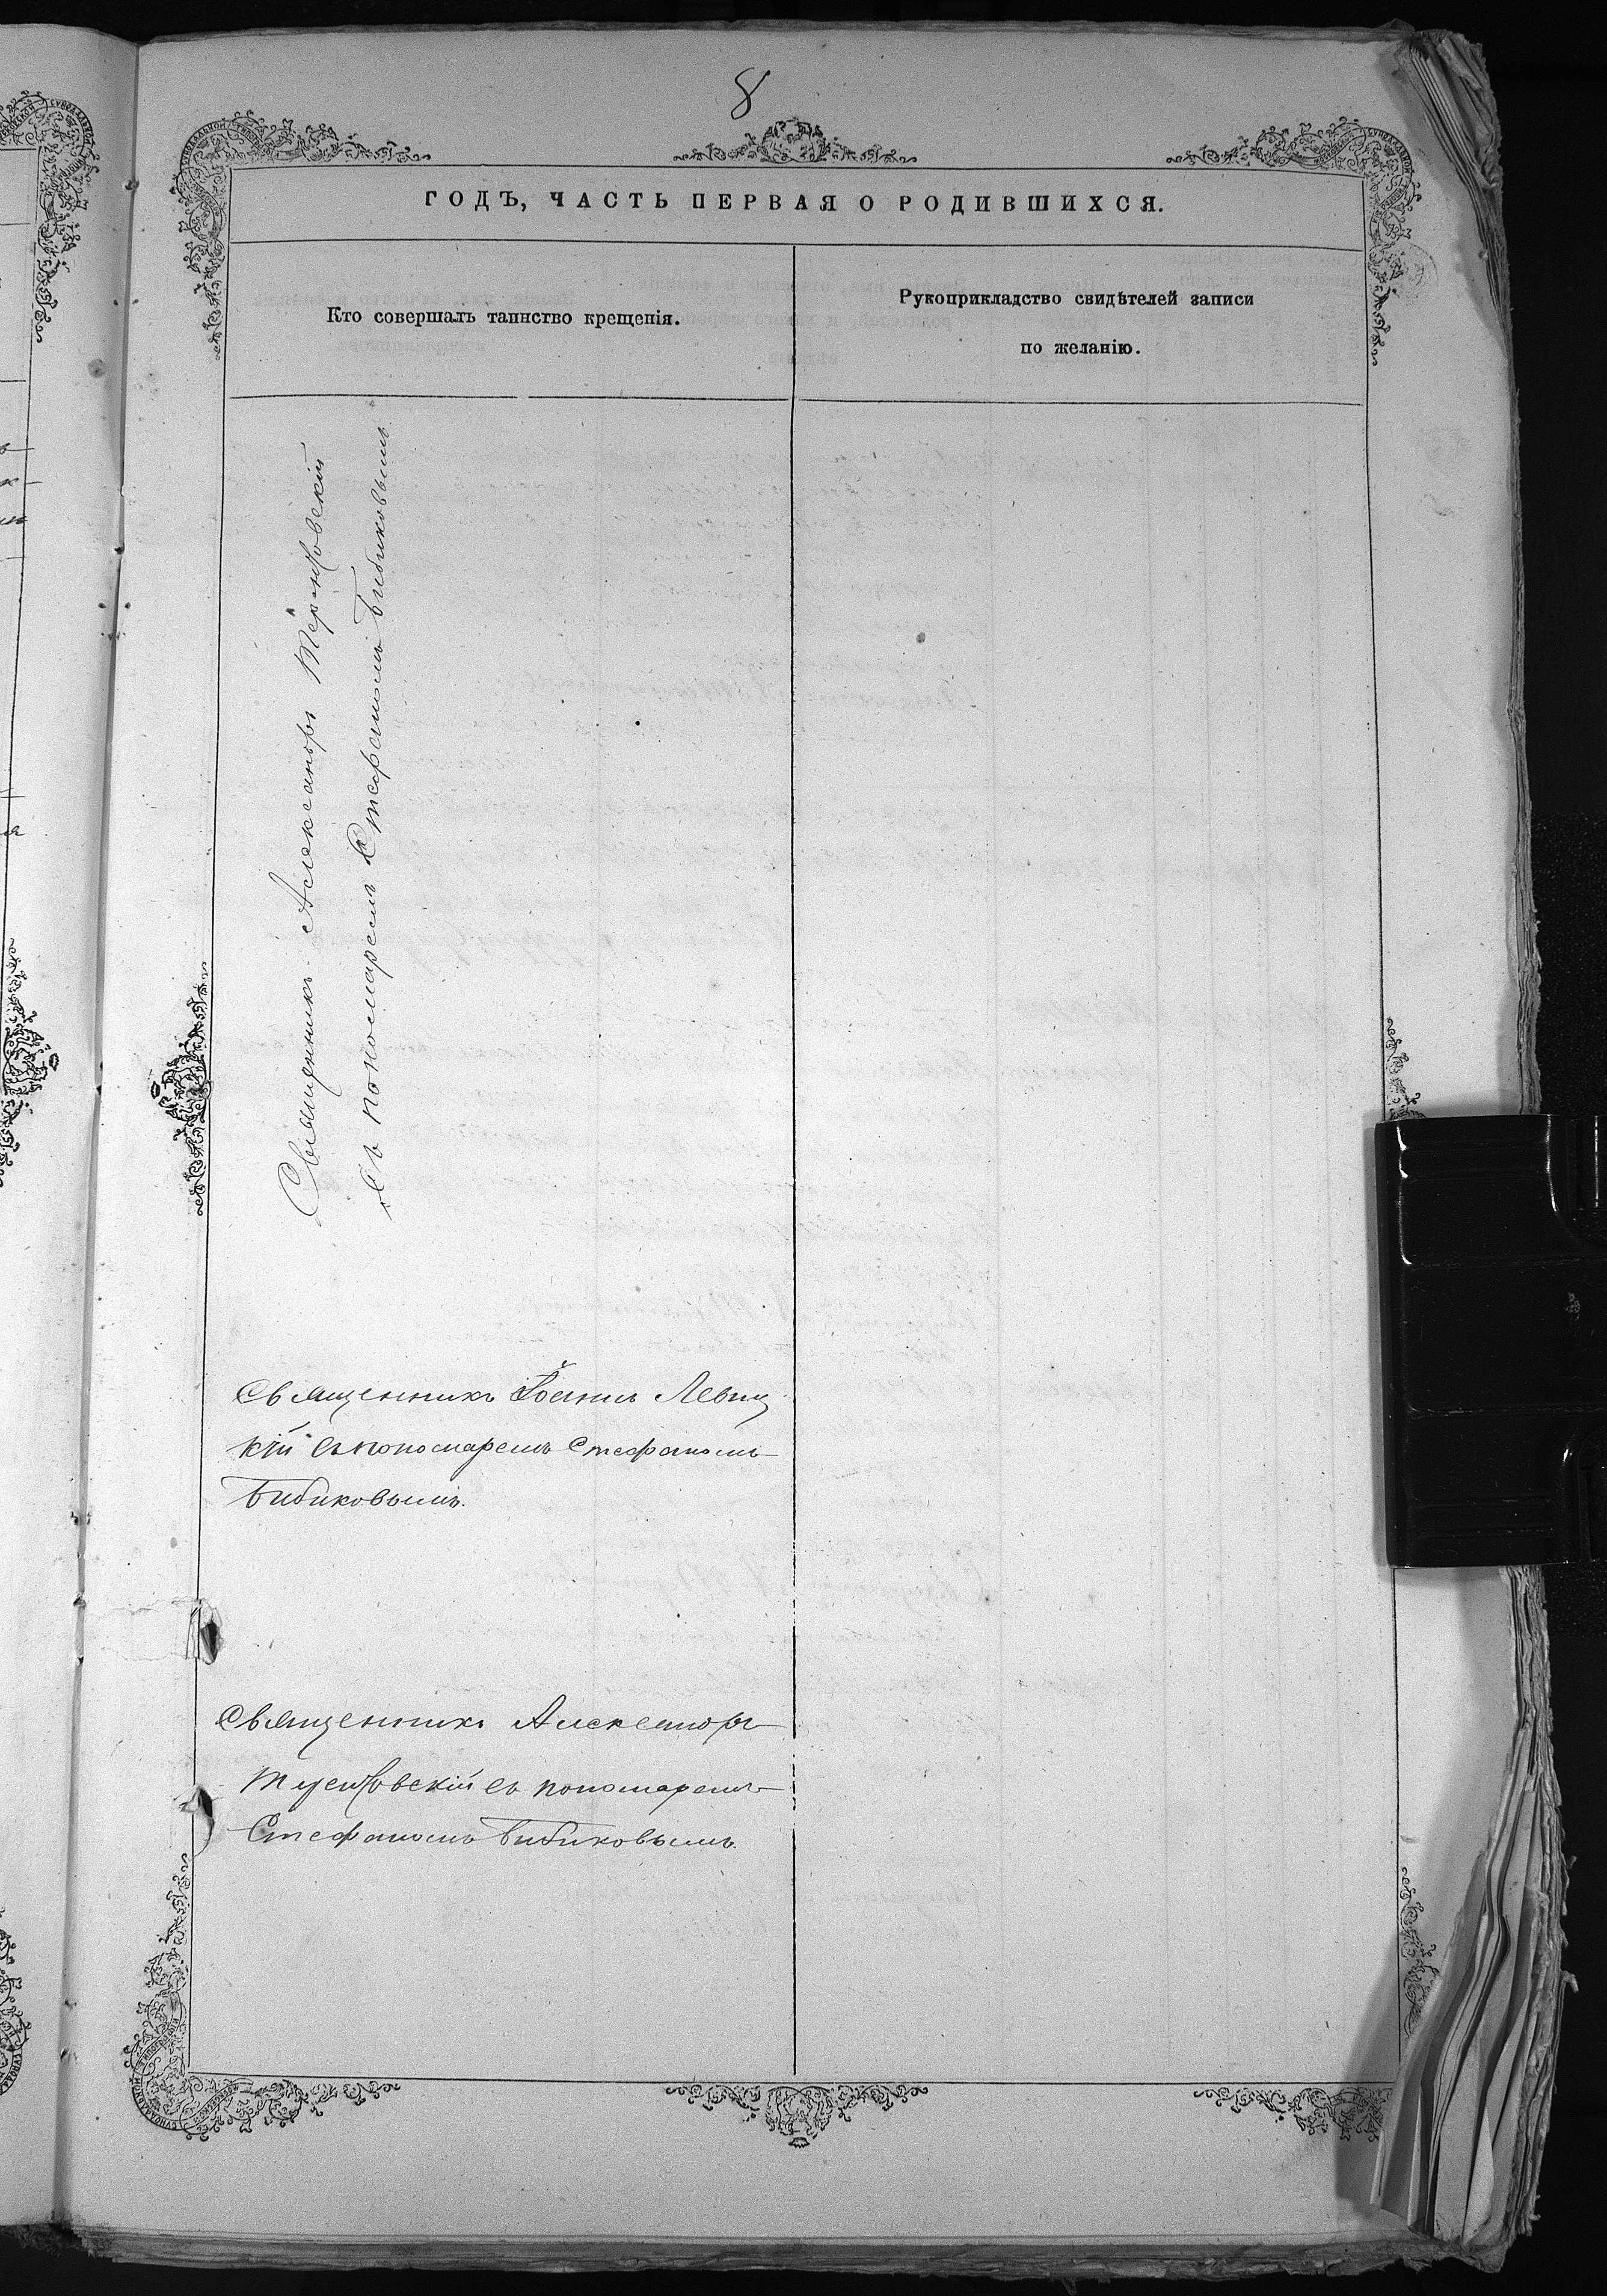 8
ГОДЪ, ЧАСТЬ ПЕРВАЯ О РОДИВШИХСЯ.
Кто совершалъ таинство крещенія.
Рукоприкладство свидѣтелей записи
по желанію.
Священникъ Александръ
Съ пономаремъ Стефаномъ Бибиковымъ
Священникъ Іоаннъ Левиц
кій съ пономаремъ Стефаномъ
Бибиковымъ.
Священникъ Александръ
съ пономаремъ
Стефаномъ Бибиковымъ.